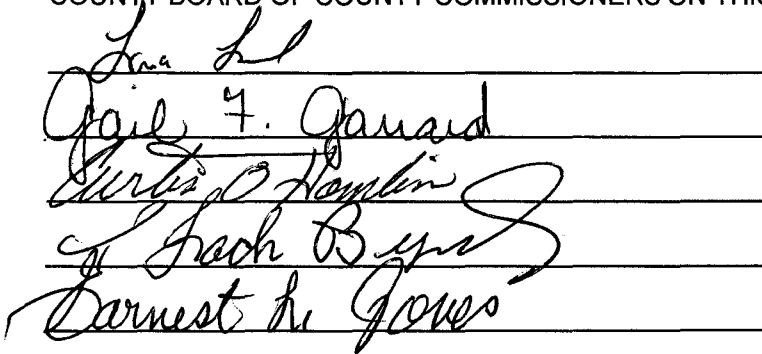 COUNTY BOARD OF COUNTY COMMISSIONERS ON THIS
Gail F. Garrard
Curtis O Hamlin
Zach
Earnest L. Jones